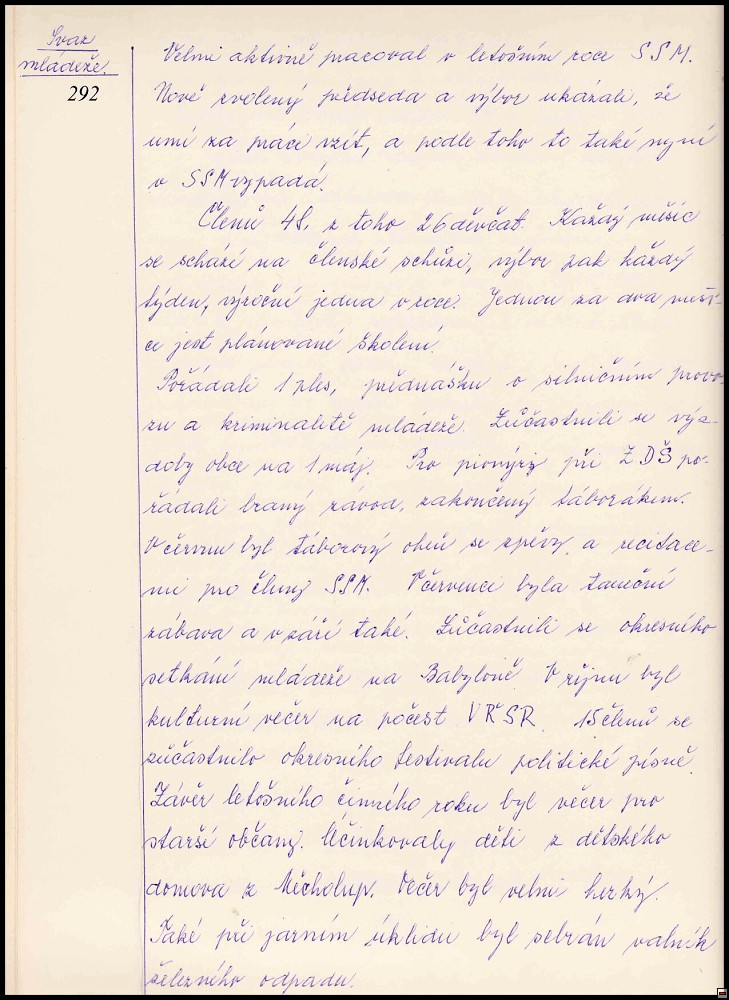 Svaz
mládeže.
292
Velmi aktivně pracoval v letošním roce SSM.
Nově zvolený předseda a výbor ukázali, že
umí za práci vzít, a podle toho to také nyní
v SSM vypadá.
Členů 48, z toho 26 děvčat. Každý měsíc
se schází na členské schůzi, výbor pak každý
týden, výroční jedna v roce. Jednou za dva měsí-
ce jest plánované školení.
Pořádali 1 ples, přednášku o silničním provo-
zu a kriminalitě mládeže. Zúčastnili se výz-
doby obce na 1 máj. Pro pionýry při ZDŠ po-
řádali branný závod, zakončený táborákem.
V červnu byl táborový oheň se zpěvy a recitace-
mi pro členy SSM. V červenci byla taneční
zábava a v září také. Zúčastnili se okresního
setkání mládeže na Babyloně. V říjnu byl
kulturní večer na počest VŘSR. 15 členů se
zúčastnilo okresního festivalu politické písně.
Závěr letošního činného roku byl večer pro
starší občany. Účinkovaly děti z dětského
domova z Měcholup. Večer byl velmi hezký.
Také při jarním úklidu byl sebrán valník
železného odpadu.